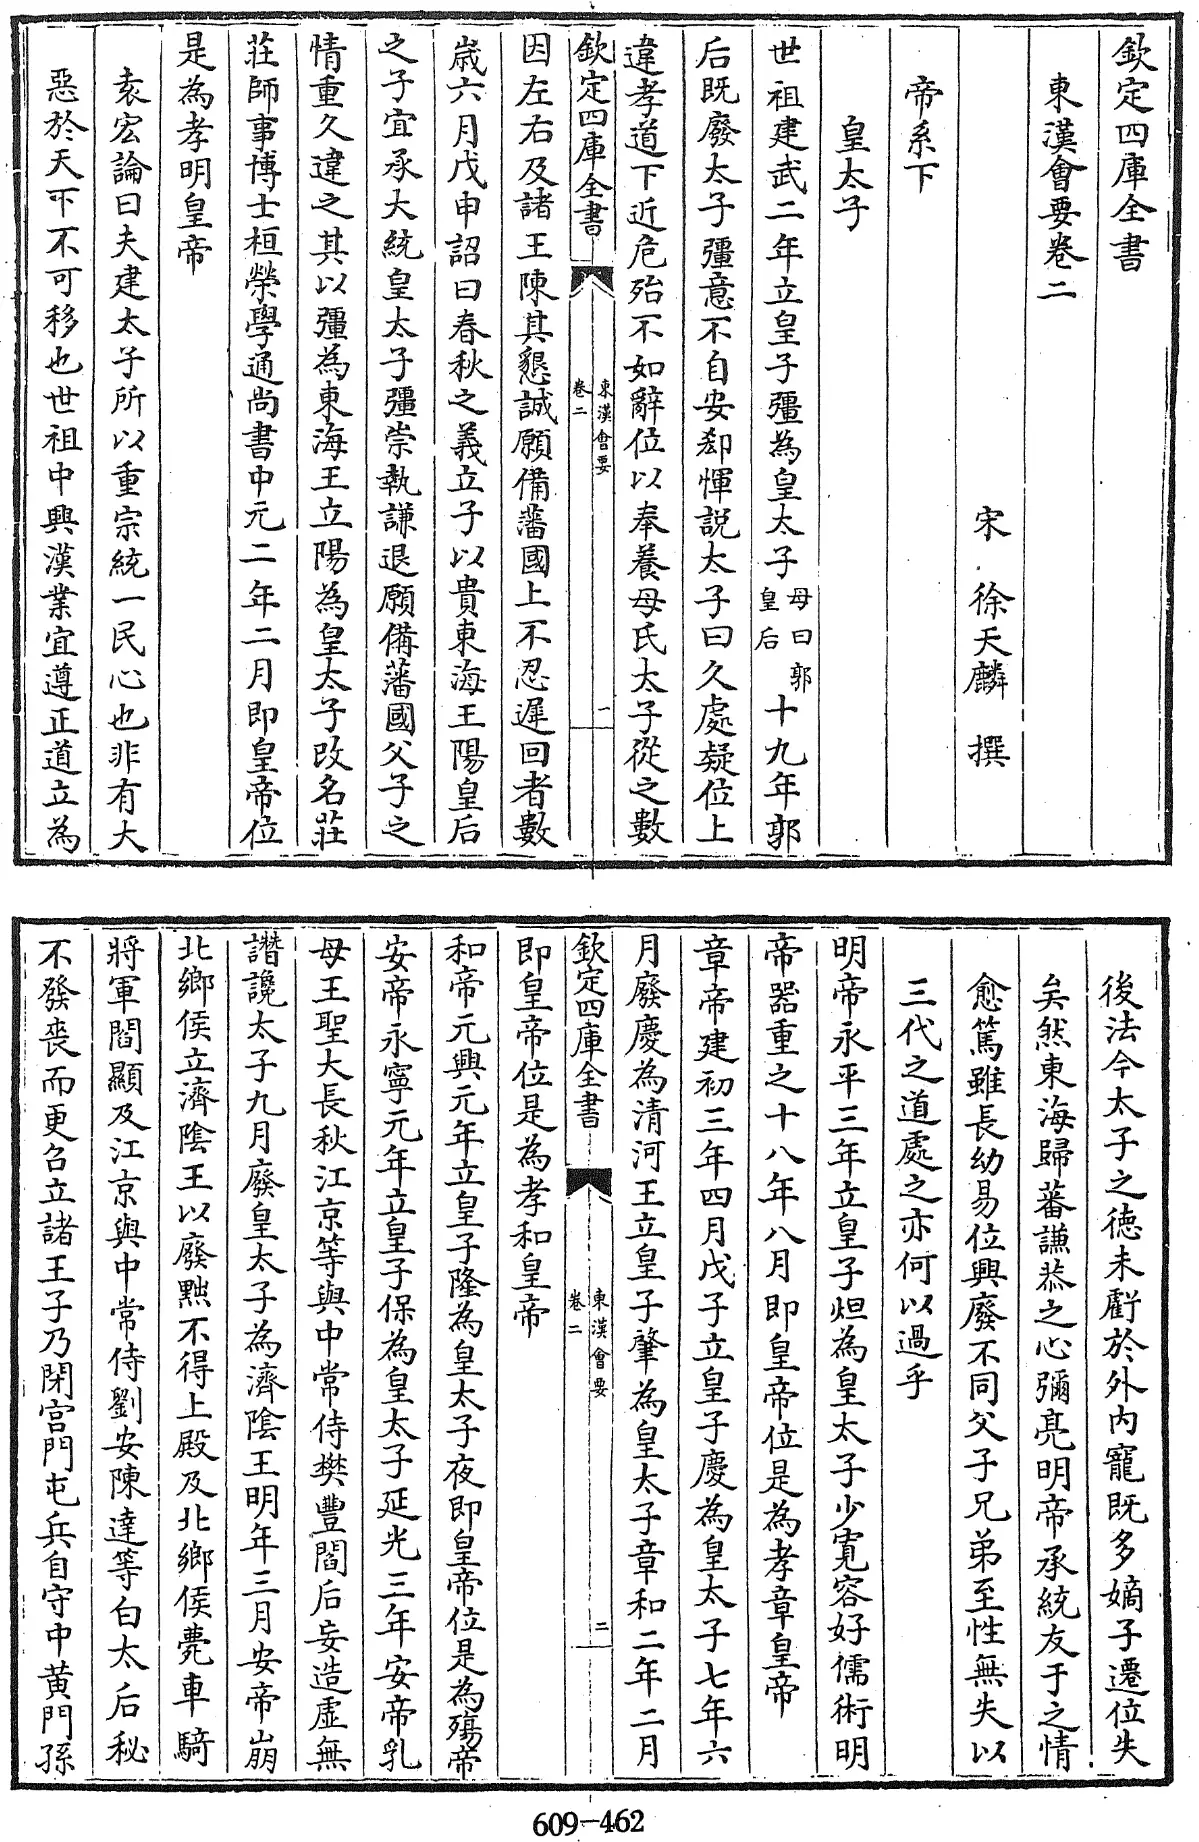 欽定四庫全書
東漢會要卷二
宋 徐天麟 撰
帝系下
皇太子
世祖建武二年立皇子彊為皇太子母曰郭皇后十九年郭
后既廢太子彊意不自安郅惲說太子曰久處疑位上
違孝道下近危殆不如辭位以奉養母氏太子從之數
欽定四庫全書
東漢會要
卷二
一
因左右及諸王陳其懇誠願備藩國上不忍遲回者數
歲六月戊申詔曰春秋之義立子以貴東海王陽皇后
之子宜承大統皇太子彊崇執謙退願備藩國父子之
情重久違之其以彊為東海王立陽為皇太子改名莊
莊師事博士桓榮學通尚書中元二年二月即皇帝位
是為孝明皇帝
袁宏論曰夫建太子所以重宗統一民心也非有大
惡於天下不可移也世祖中興漢業宜遵正道立為
後法今太子之徳未虧於外内寵既多嫡子遷位失
矣然東海歸蕃謙恭之心彌亮明帝承統友于之情
愈篤雖長幼易位興廢不同父子兄弟至性無失以
三代之道處之亦何以過乎
明帝永平三年立皇子炟為皇太子少寛容好儒術明
帝器重之十八年八月即皇帝位是為孝章皇帝
章帝建初三年四月戊子立皇子慶為皇太子七年六
月廢慶為清河王立皇子肇為皇太子章和二年二月
欽定四庫全書
東漢會要
卷二
二
即皇帝位是為孝和皇帝
和帝元興元年立皇子隆為皇太子夜即皇帝位是為殤帝
安帝永寧元年立皇子保為皇太子延光三年安帝乳
母王聖大長秋江京等與中常侍樊豐閻后妄造虛無
譖讒太子九月廢皇太子為濟陰王明年三月安帝崩
北鄉侯立濟陰王以廢黜不得上殿及北鄉侯薨車騎
將軍閻顯及江京與中常侍劉安陳達等白太后秘
不發喪而更召立諸王子乃閉宫門屯兵自守中黃門孫
609-462